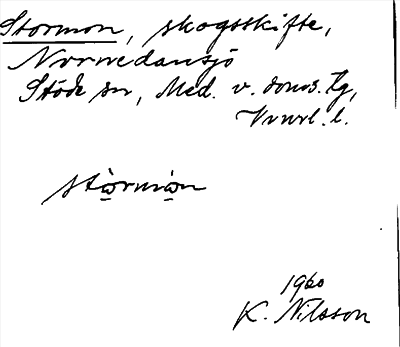 Stormon, skogsskifte,
Norrnedansjö
Stöde sn, Med. v. doms. Tg,
Vnrl. l.
stòrmòn
1960
K. Nilsson